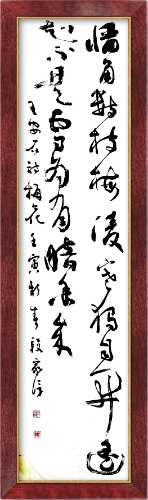 墙角数枝梅凌寒独自开遥
知不是雪为有暗香来
王安石诗梅花壬寅新春段家